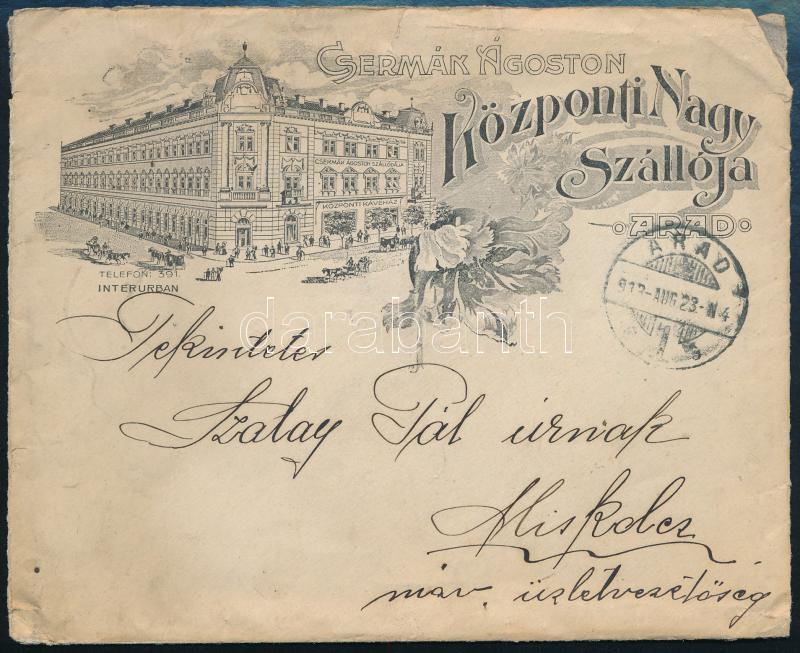 CSERMÁK ÁGOSTON
Központi Nagy
Szállója
ARAD
CSERMÁK ÁGOSTON SZÁLLÓJA
KÖZPONTI KÁVÉHÁZ
TELEFON: 391.
INTERURBAN
ARAD
913-AUG 23-N4
darabanth
Tekintetes
Szalay Pál úrnak
Miskolcz
máv. üzletvezetőség